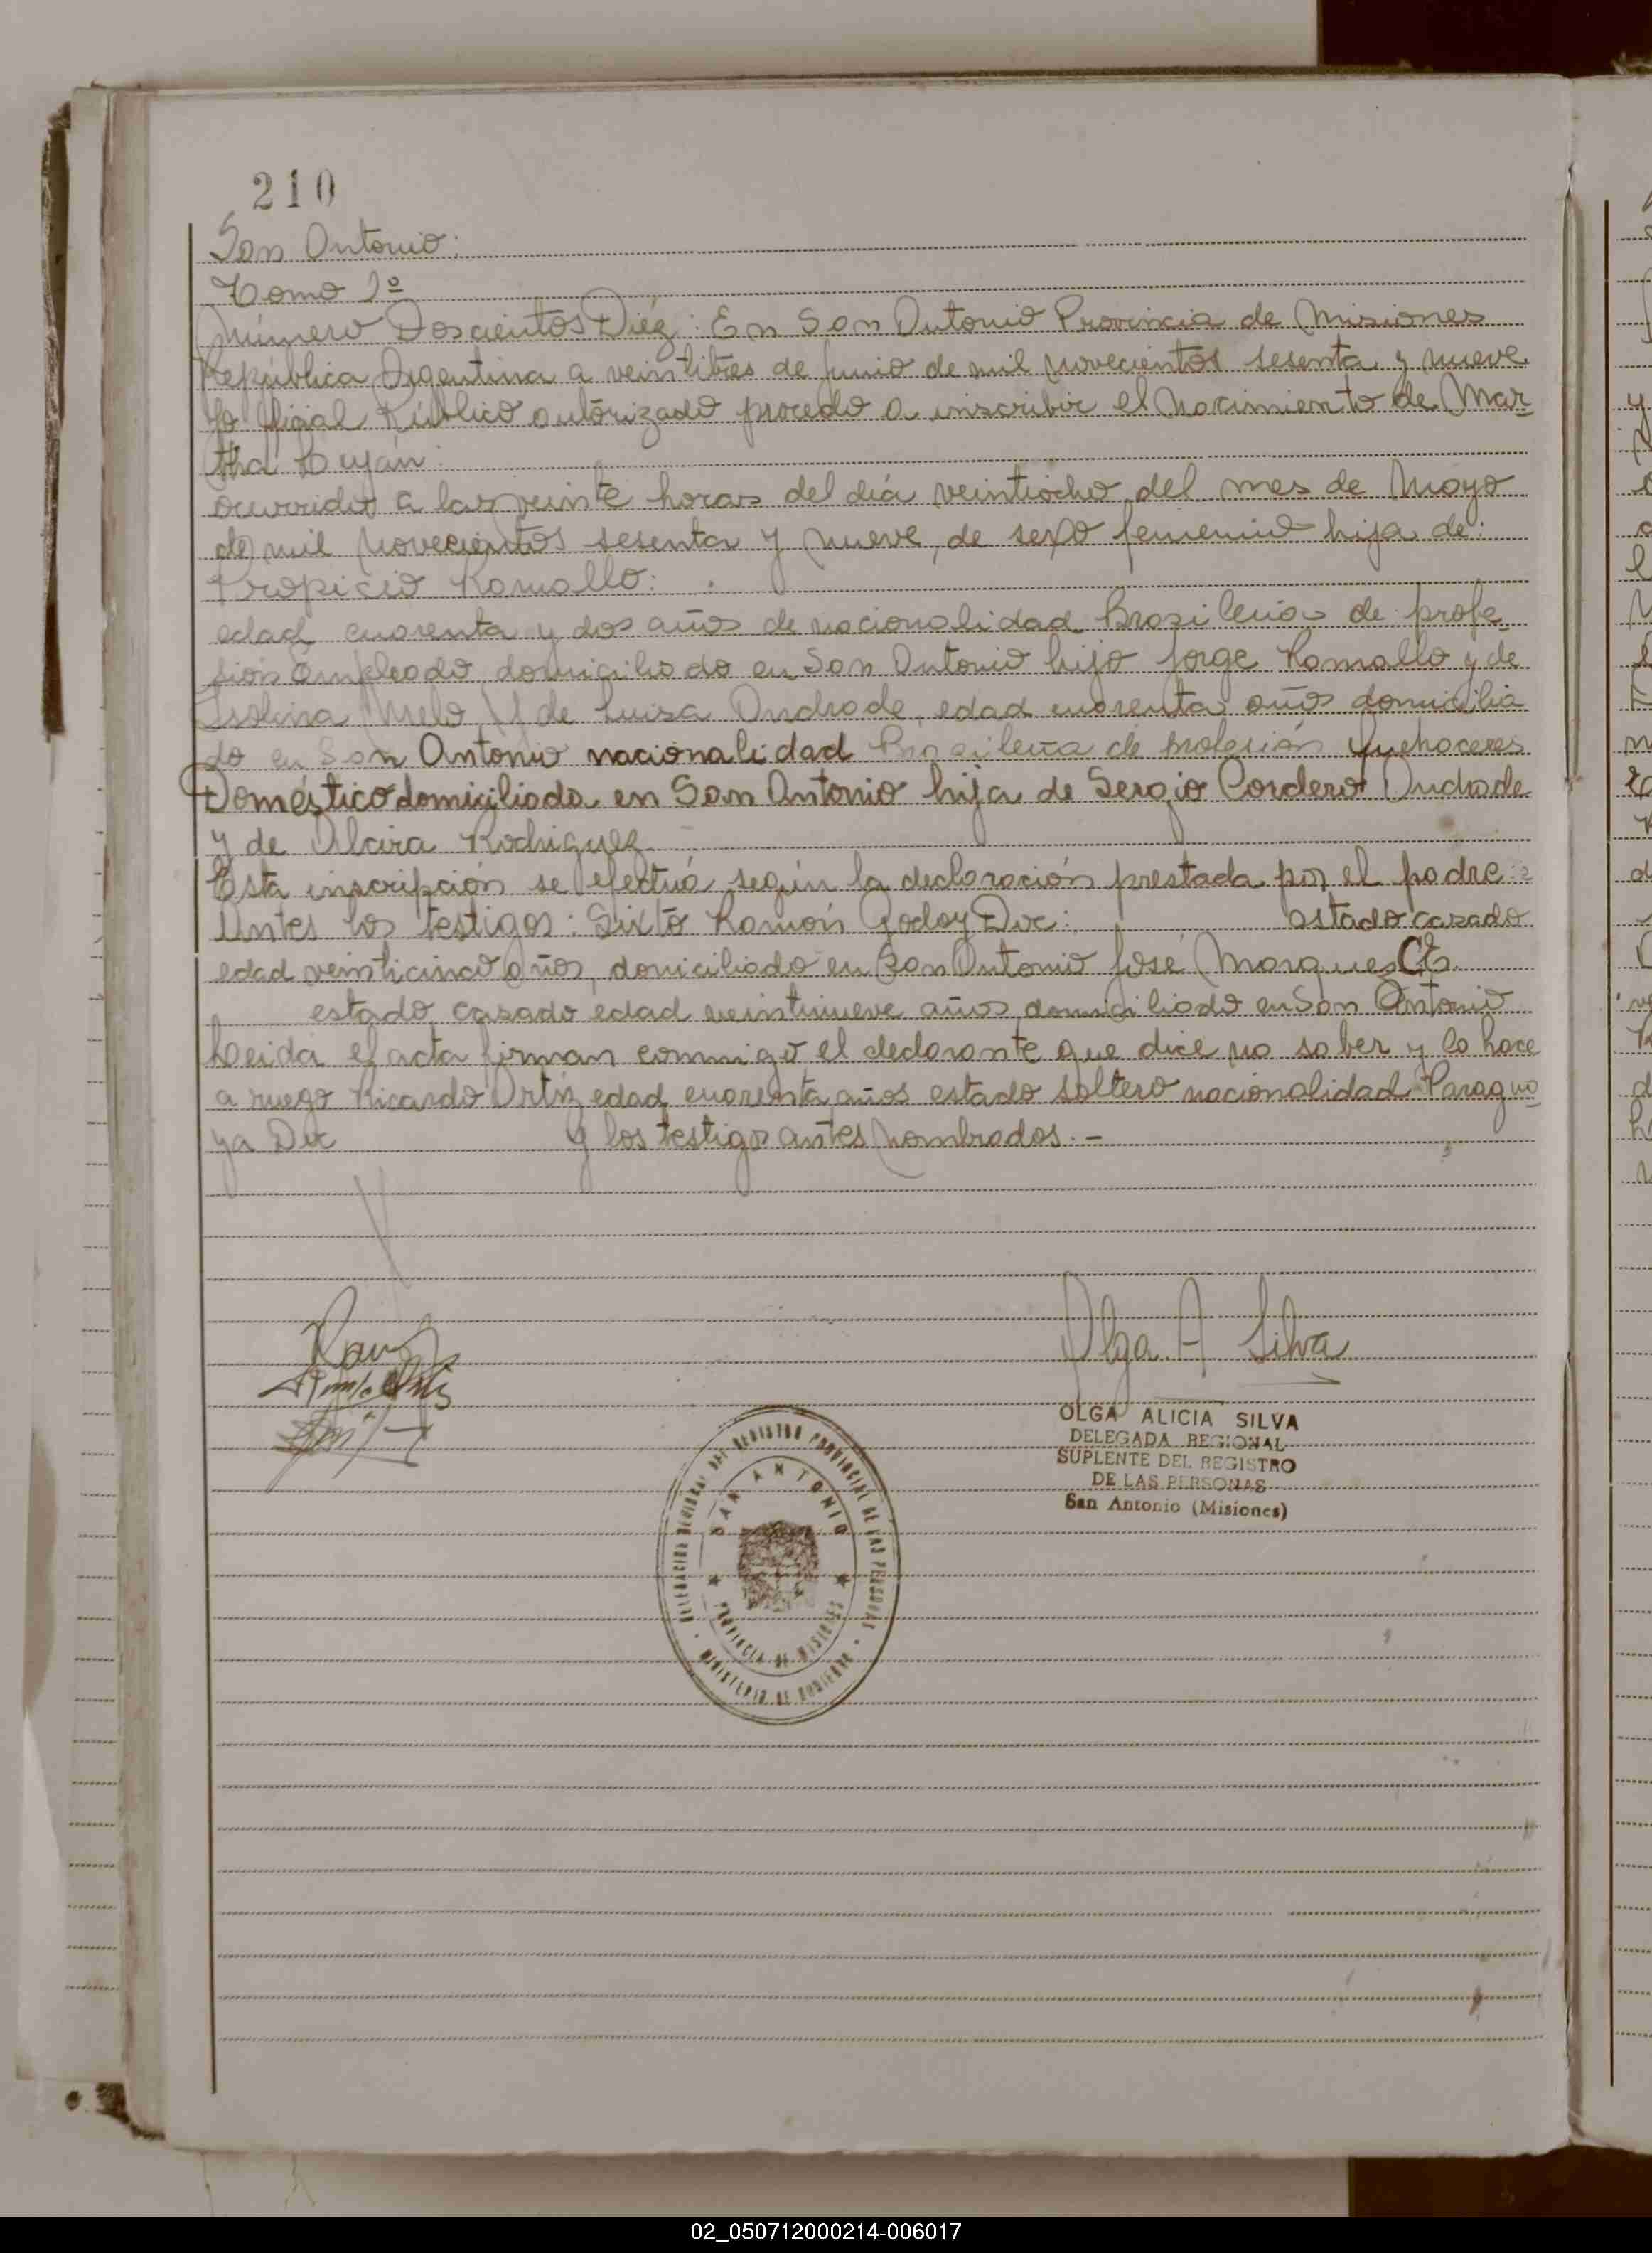 210
San Antonio:
Tomo 1º
Número Doscientos Diéz: En San Antonio Provincia de Misiones
República Argentina a veintitres de Junio de mil novecientos sesenta y nueve
Yo Oficial Público autorizado procedo a inscribir el Nacimiento de Mar-
tha Luján:
ocurrido a las veinte horas del día veintiocho del mes de Mayo
de mil novecientos sesenta y nueve, de sexo femenino hija de:
Propicio Ramallo:
edad cuarenta y dos años de nacionalidad Brasilena de profe-
sión Empleado domiciliado en San Antonio hijo Jorge Ramallo y de
Isolina Melo Y de Luisa Andrade, edad cuarenta años domicilia
do en San Antonio nacionalidad Brasilena de profesión Quehaceres
Doméstico domiciliada en San Antonio hija de Sergio Cordero Andrade
y de Alcira Rodriguez
Esta inscripción se efectuá según la declaración prestada por el padre:
Antes los testigos: Sixto Ramón Godoy Doc: estado casado
edad veinticinco años, domiciliado en San Antonio José Marques
estado casado edad veintinueve años domiciliado en San Antonio
Leida el acta firman conmigo el declarante que dice no saber y lo hace
a ruego Ricardo Ortíz edad cuarenta años estado soltero nacionalidad Paragua-
ya Doc y los testigos antes nombrados.-
Olga A Silva
OLGA ALICIA SILVA
DELEGADA REGIONAL
SUPLENTE DEL REGISTRO
DE LAS PERSONAS
San Antonio (Misiones)
DELEGACION REGIONAL DEL REGISTRO PROVINCIAL DE LAS PERSONAS
SAN ANTONIO
PROVINCIA DE MISIONES
MINISTERIO DE GOBIERNO
02_050712000214-006017